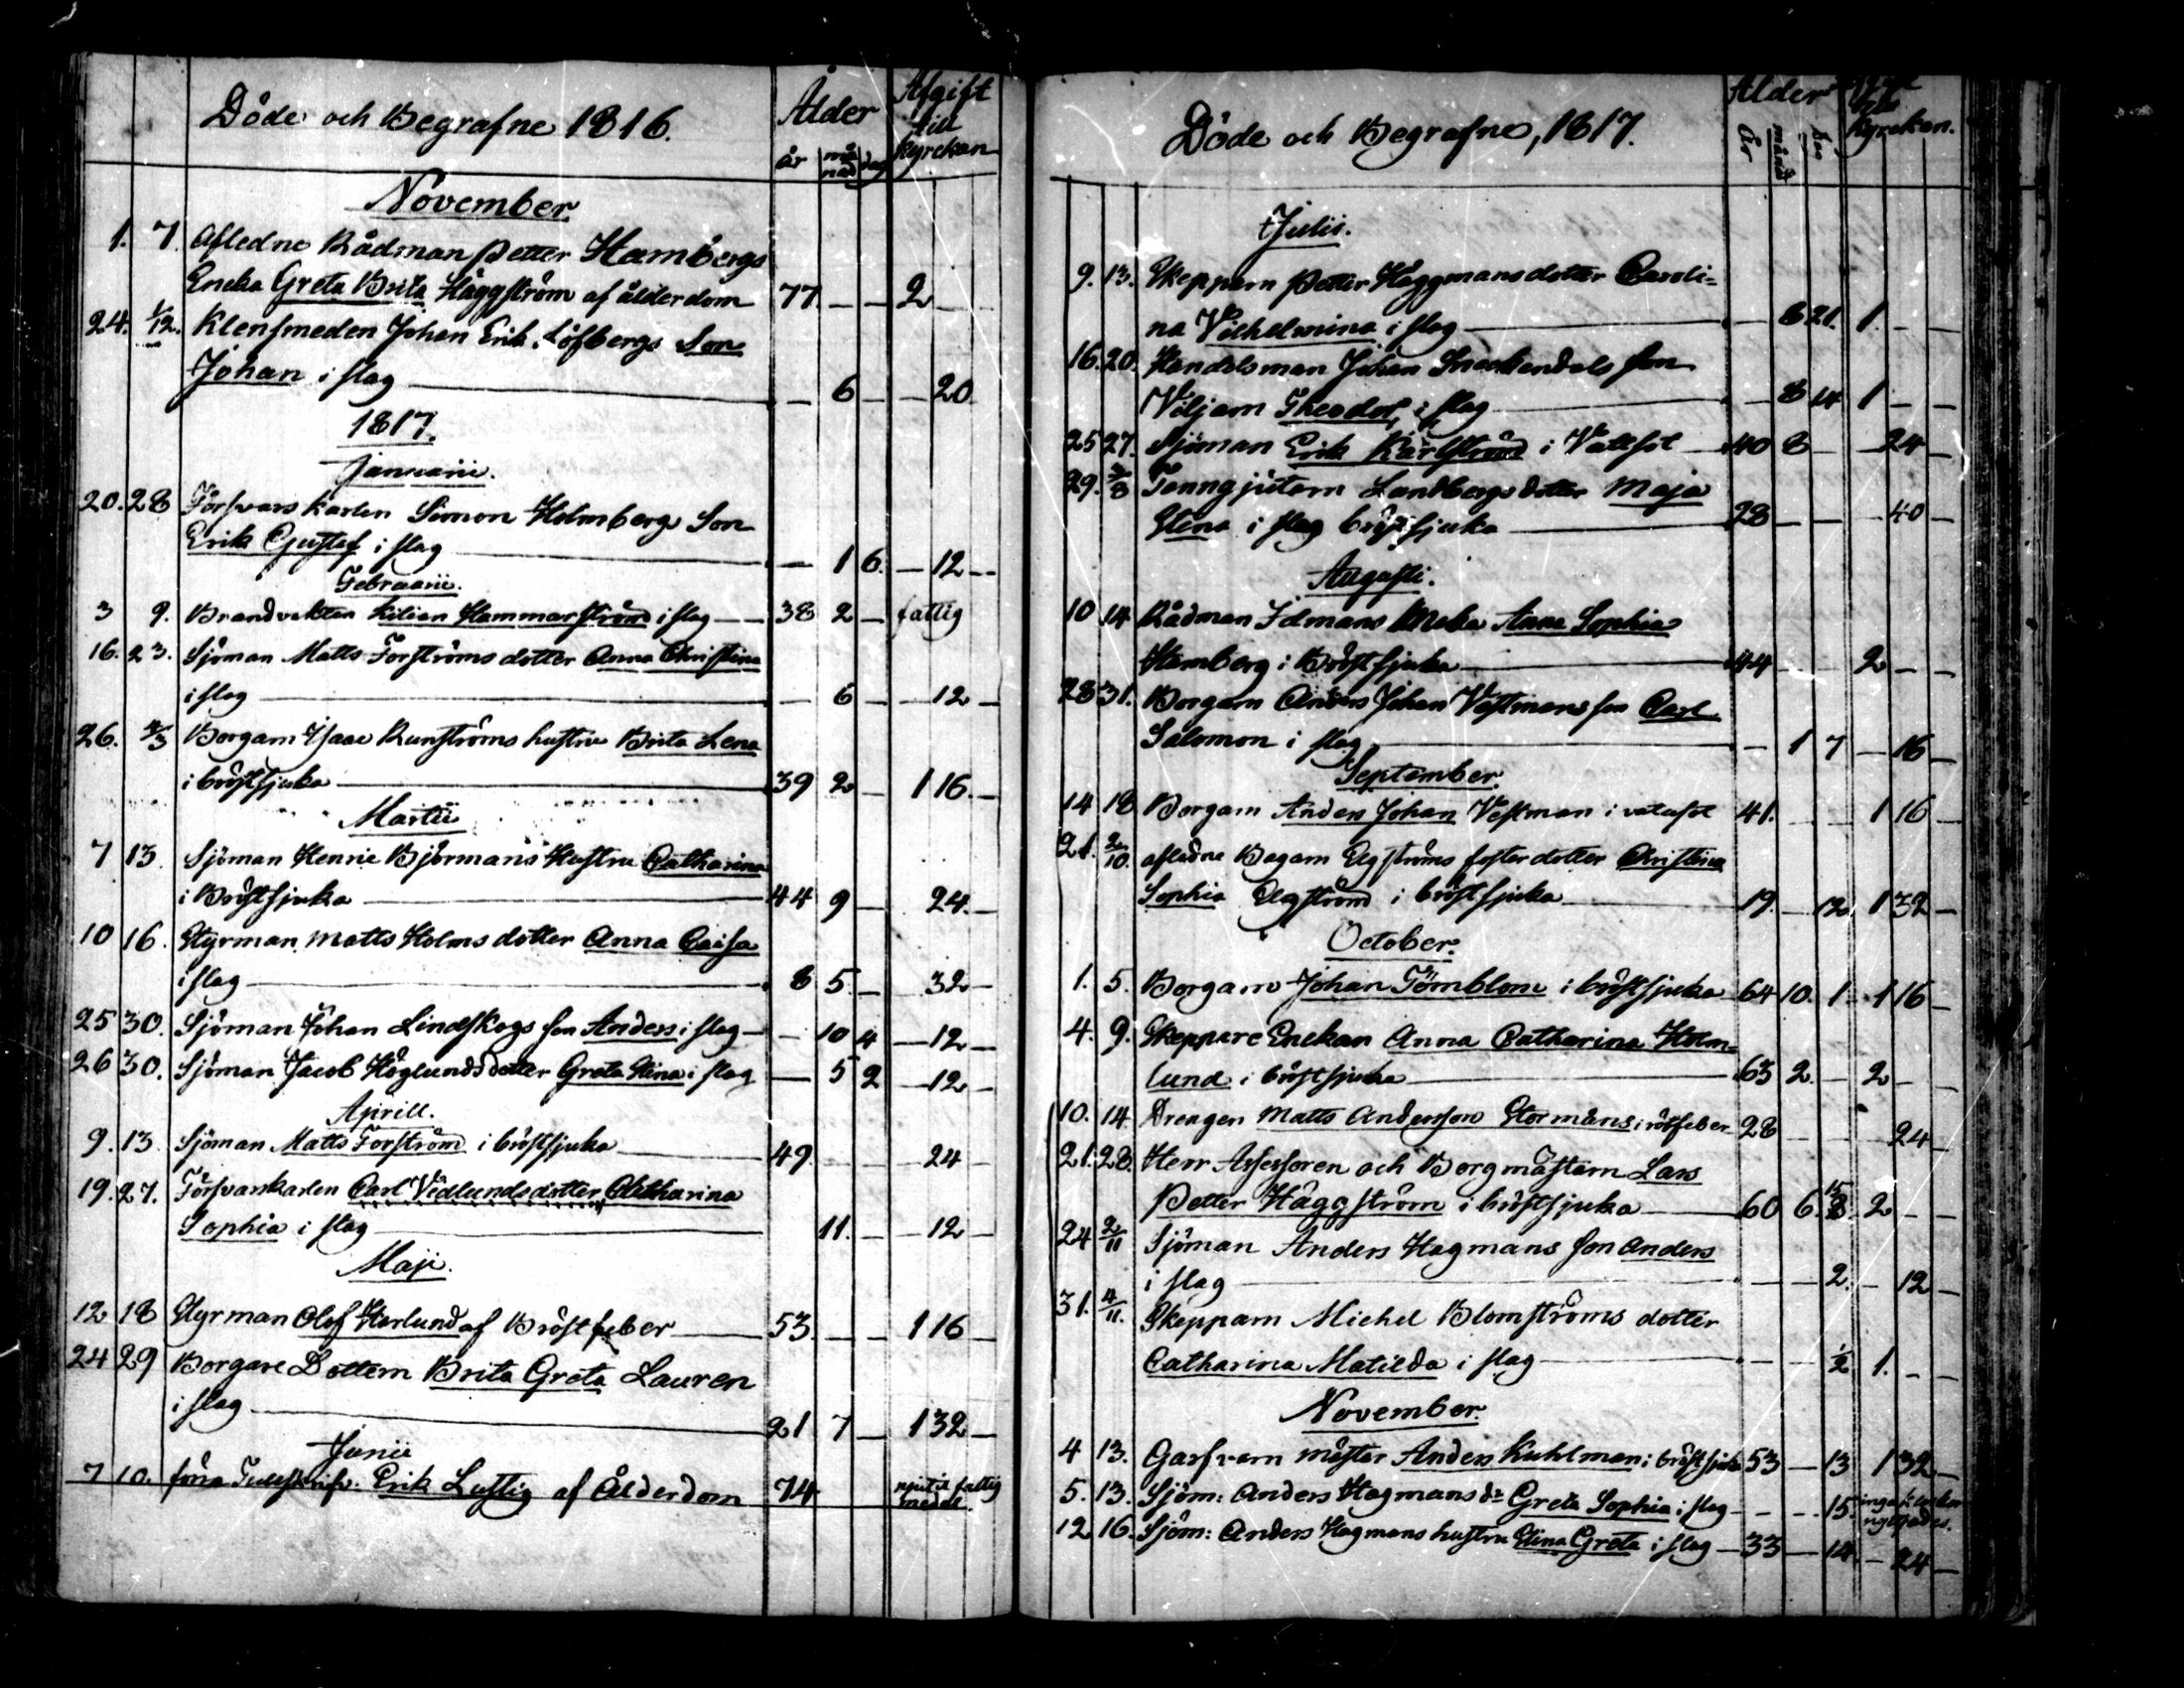 Döde och Begrafne 1816.
Ålder
år månad dag
Afgift till Kyrckan
November
1. 7. Afledne Rådman Petter Hambergs
Encka Greta Brita Häggström af ålderdom 77. — — 2
24. 1/12. Klensmeden Johan Erik Löfbergs Son
Johan i slag — 6 — — 20.
1817.
Januarii.
20. 28 Försvarskarlen Simon Holmbergs Son
Erik Gustaf i slag — 1 6. — 12 —
Februarii.
3 9. Brandvakten Kilian Hammarström i slag 38 2 — fattig
16. 23. Sjöman Matts Forströms dotter Anna Christina
i slag — 6 — — 12 —
26. 4/3 Borgarn Isaac Runströms hustru Brita Lena
i bröstsjuka 39 2 — 1 16. —
Martii
7 13. Sjöman Henric Björmans Hustru Catharina
i Bröstsjuka 44 9 — 24. —
10 16. Styrman Matts Holms dotter Anna Caisa
i slag 8 5. — 32 —
25 30. Sjöman Johan Lindskogs son Anders i slag — 10 4 — 12 —
26 30. Sjöman Jacob Höglunds dotter Greta Stina i slag — 5 2 — 12 —
Aprill.
9. 13. Sjöman Matts Forström i bröstsjuka 49. — 24 —
19. 27. Försvarskarlen Carl Vedlunds dotter Catharina
Sophia i slag 11. — — 12 —
Maji.
12 18 Styrman Olof Herlund af Bröstfeber 53. — — 1 16 —
24 29 Borgare Dottern Brita Greta Lauren
i slag 21 7 — 1 32 —
Junii
7 10. förra Tullskrifv. Erik Lustig af Ålderdom 74. fattig medel.
Döde och Begrafne, 1817.
Ålder
År månad dag
Kyrckan.
Julii.
9. 13. Skepparn Petter Häggmans dotter Caroli=
na Vilhelmina i slag — 8 21. 1. — —
16. 20. Handelsman Johan Sneckendals son
Viljam Theodor, i slag — 8 14 1 — —
25 27. Sjöman Erik Kärlström i Vattsot 40 8 — 24 —
29. 3/8 Tenngjutarn Landbergs dotter Maja
Stina i slag bröstsjuka 28 — — — 40 —
Augusti.
10 14 Rådman Idmans Maka Anna Sophia
Hamberg i Bröstsjuka 44 — — 2 — —
28 31. Borgarn Anders Johan Vestmans son Carl
Salomon i slag — 1 7 — 16 —
September.
14 18 Borgarn Anders Johan Vestman i vatusot 41. 1 16
21. 2/10. afledne Bagarn Elgströms foster dotter Christina
Sophia Elgström i bröstsjuka 19. — 12. 1 32 —
October.
1. 5. Borgarn Johan Törnblom i bröstsjuka 64 10. 1. 1 16 —
4. 9. Skeppare Enckan Anna Catharina Holm=
lund i bröstsjuka 63 2. — 2 —
10. 14 Drengen Matts Andersson Stormåns i rötfeber 28 — 24 —
21. 28. Herr Assessoren och Borgmästarn Lars
Petter Häggström i bröstsjuka 60 6. 15 2 — —
24 2/11 Sjöman Anders Hagmans son Anders
i slag — — 2. — 12 —
31. 4/11. Skepparn Michel Blomströms dotter
Catharina Matilda i slag — — 1/2 1. — —
November
4 13. Garfvarn mäster Anders Kuhlman i bröstsjuka 53 — 13 1 32 —
5. 13. Sjöm: Anders Hagmans dr Greta Sophia i slag — — 15.
12 16. Sjöm: Anders Hagmans hustru Stina Greta i slag — 33 — 14. — 24 —